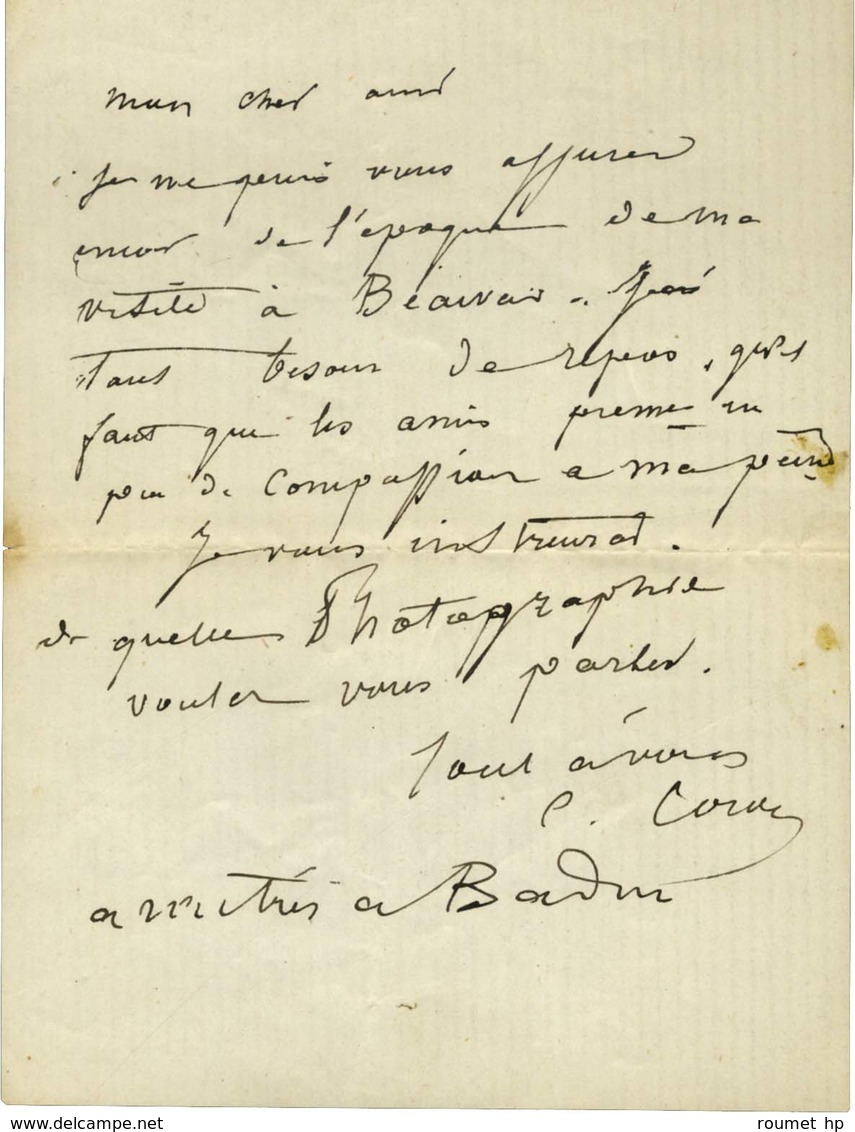 mon cher ami
Je ne puis vous assurer
encor de l'époque de ma
visite à Beauvais. J'ai
tant besoin de repos, qu'il
faut que les amis prenne un
peu de compassion a ma peine
Je vous instruirai.
de quelle Photographie
voulez vous parler.
Tout à vous
C. Corot
a
a Badin
delcampe.net
roumet hp